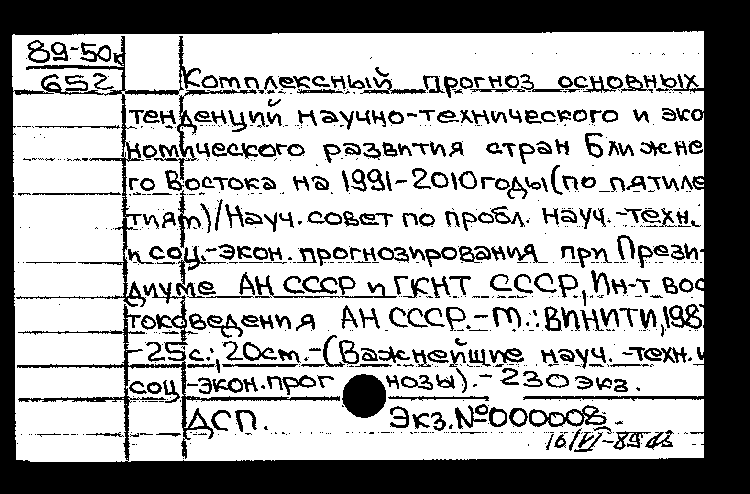 89-50к
652
Комплексный прогноз основных
тенденций научно-технического и эко
номического развития стран Ближне
го Востока на 1991-2010 годы (по пятиле
тиям)/Науч. совет по пробл. науч.-техн.
и соц.-экон. прогнозирования при Прези-
диуме АН СССР и ГКНТ СССР, Ин-т вос
токоведения АН СССР.-М.: ВИНИТИ, 198
-25с.; 20см.-(Важнейшие науч.-техн. и
соц-экон. прогнозы).-230 экз.
ДСП. Экз. №000008.
16/VI-89